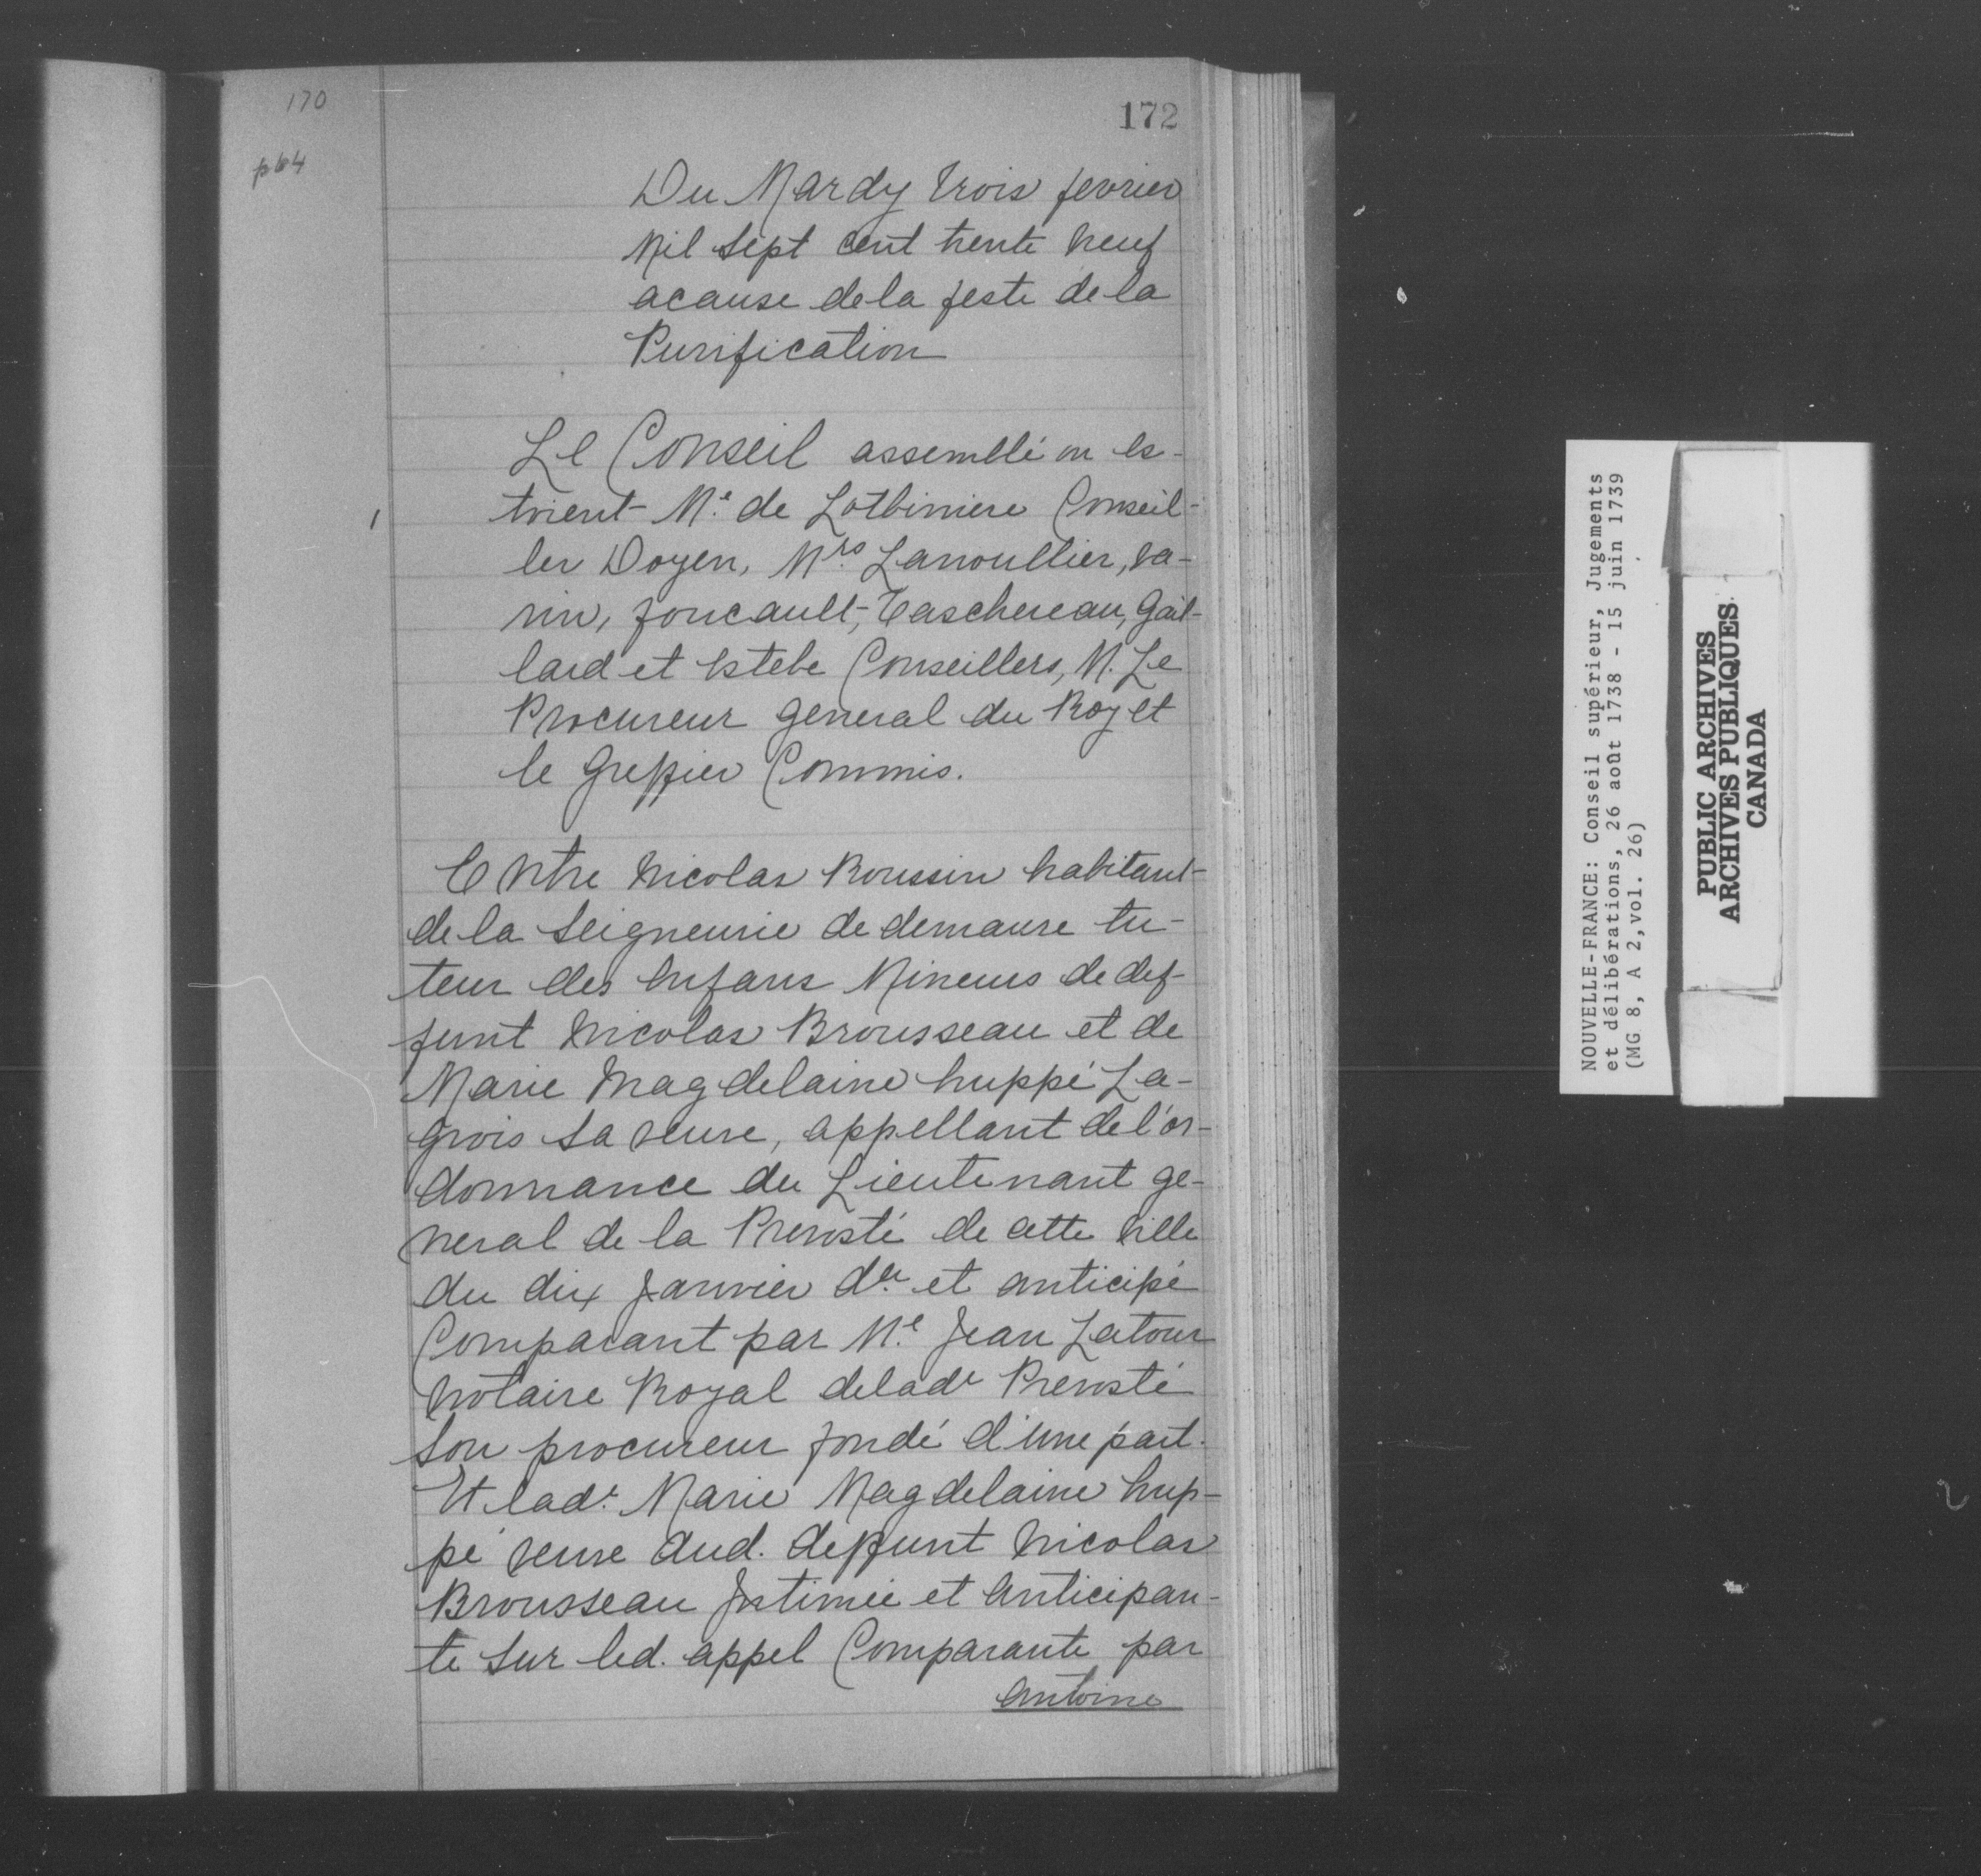 170
172
p64
Du Mardy trois fevrier
Mil sept cent trente neuf
acause de la feste de la
Purification
Le Conseil assemblé ou es-
toient Me. de Lotbiniere Conseil-
ler Doyen, Mrs. Lanoullier, va-
rin, foucault, Taschereau, Gail-
lard et Estebe Conseillers, M. Le
Procureur general du Roy et
le Greffier Commis.
Entre Nicolas Roussin habitant
de la Seigneurie de demaure tu-
teur des Enfans Mineurs de def-
funt Nicolas Brousseau et de
Marie Magdelaine huppé La-
grois sa veuve, appellant de l'or-
donnance du Lieutenant ge-
neral de la Prevosté de cette ville
du dix Janvier der. et anticipé
Comparant par Me. Jean Latour
Notaire Royal deladt Prevosté
son procureur fondé d'une part.
Et ladt. Marie Magdelaine hup-
pé veuve dud. deffunt Nicolas
Brousseau Intimée et anticipan-
te sur led. appel Comparante par
Antoine
NOUVELLE-FRANCE: Conseil supérieur, Jugements
et délibérations, 26 août 1738 - 15 juin 1739
(MG 8, A 2,vol. 26)
PUBLIC ARCHIVES
ARCHIVES PUBLIQUES
CANADA